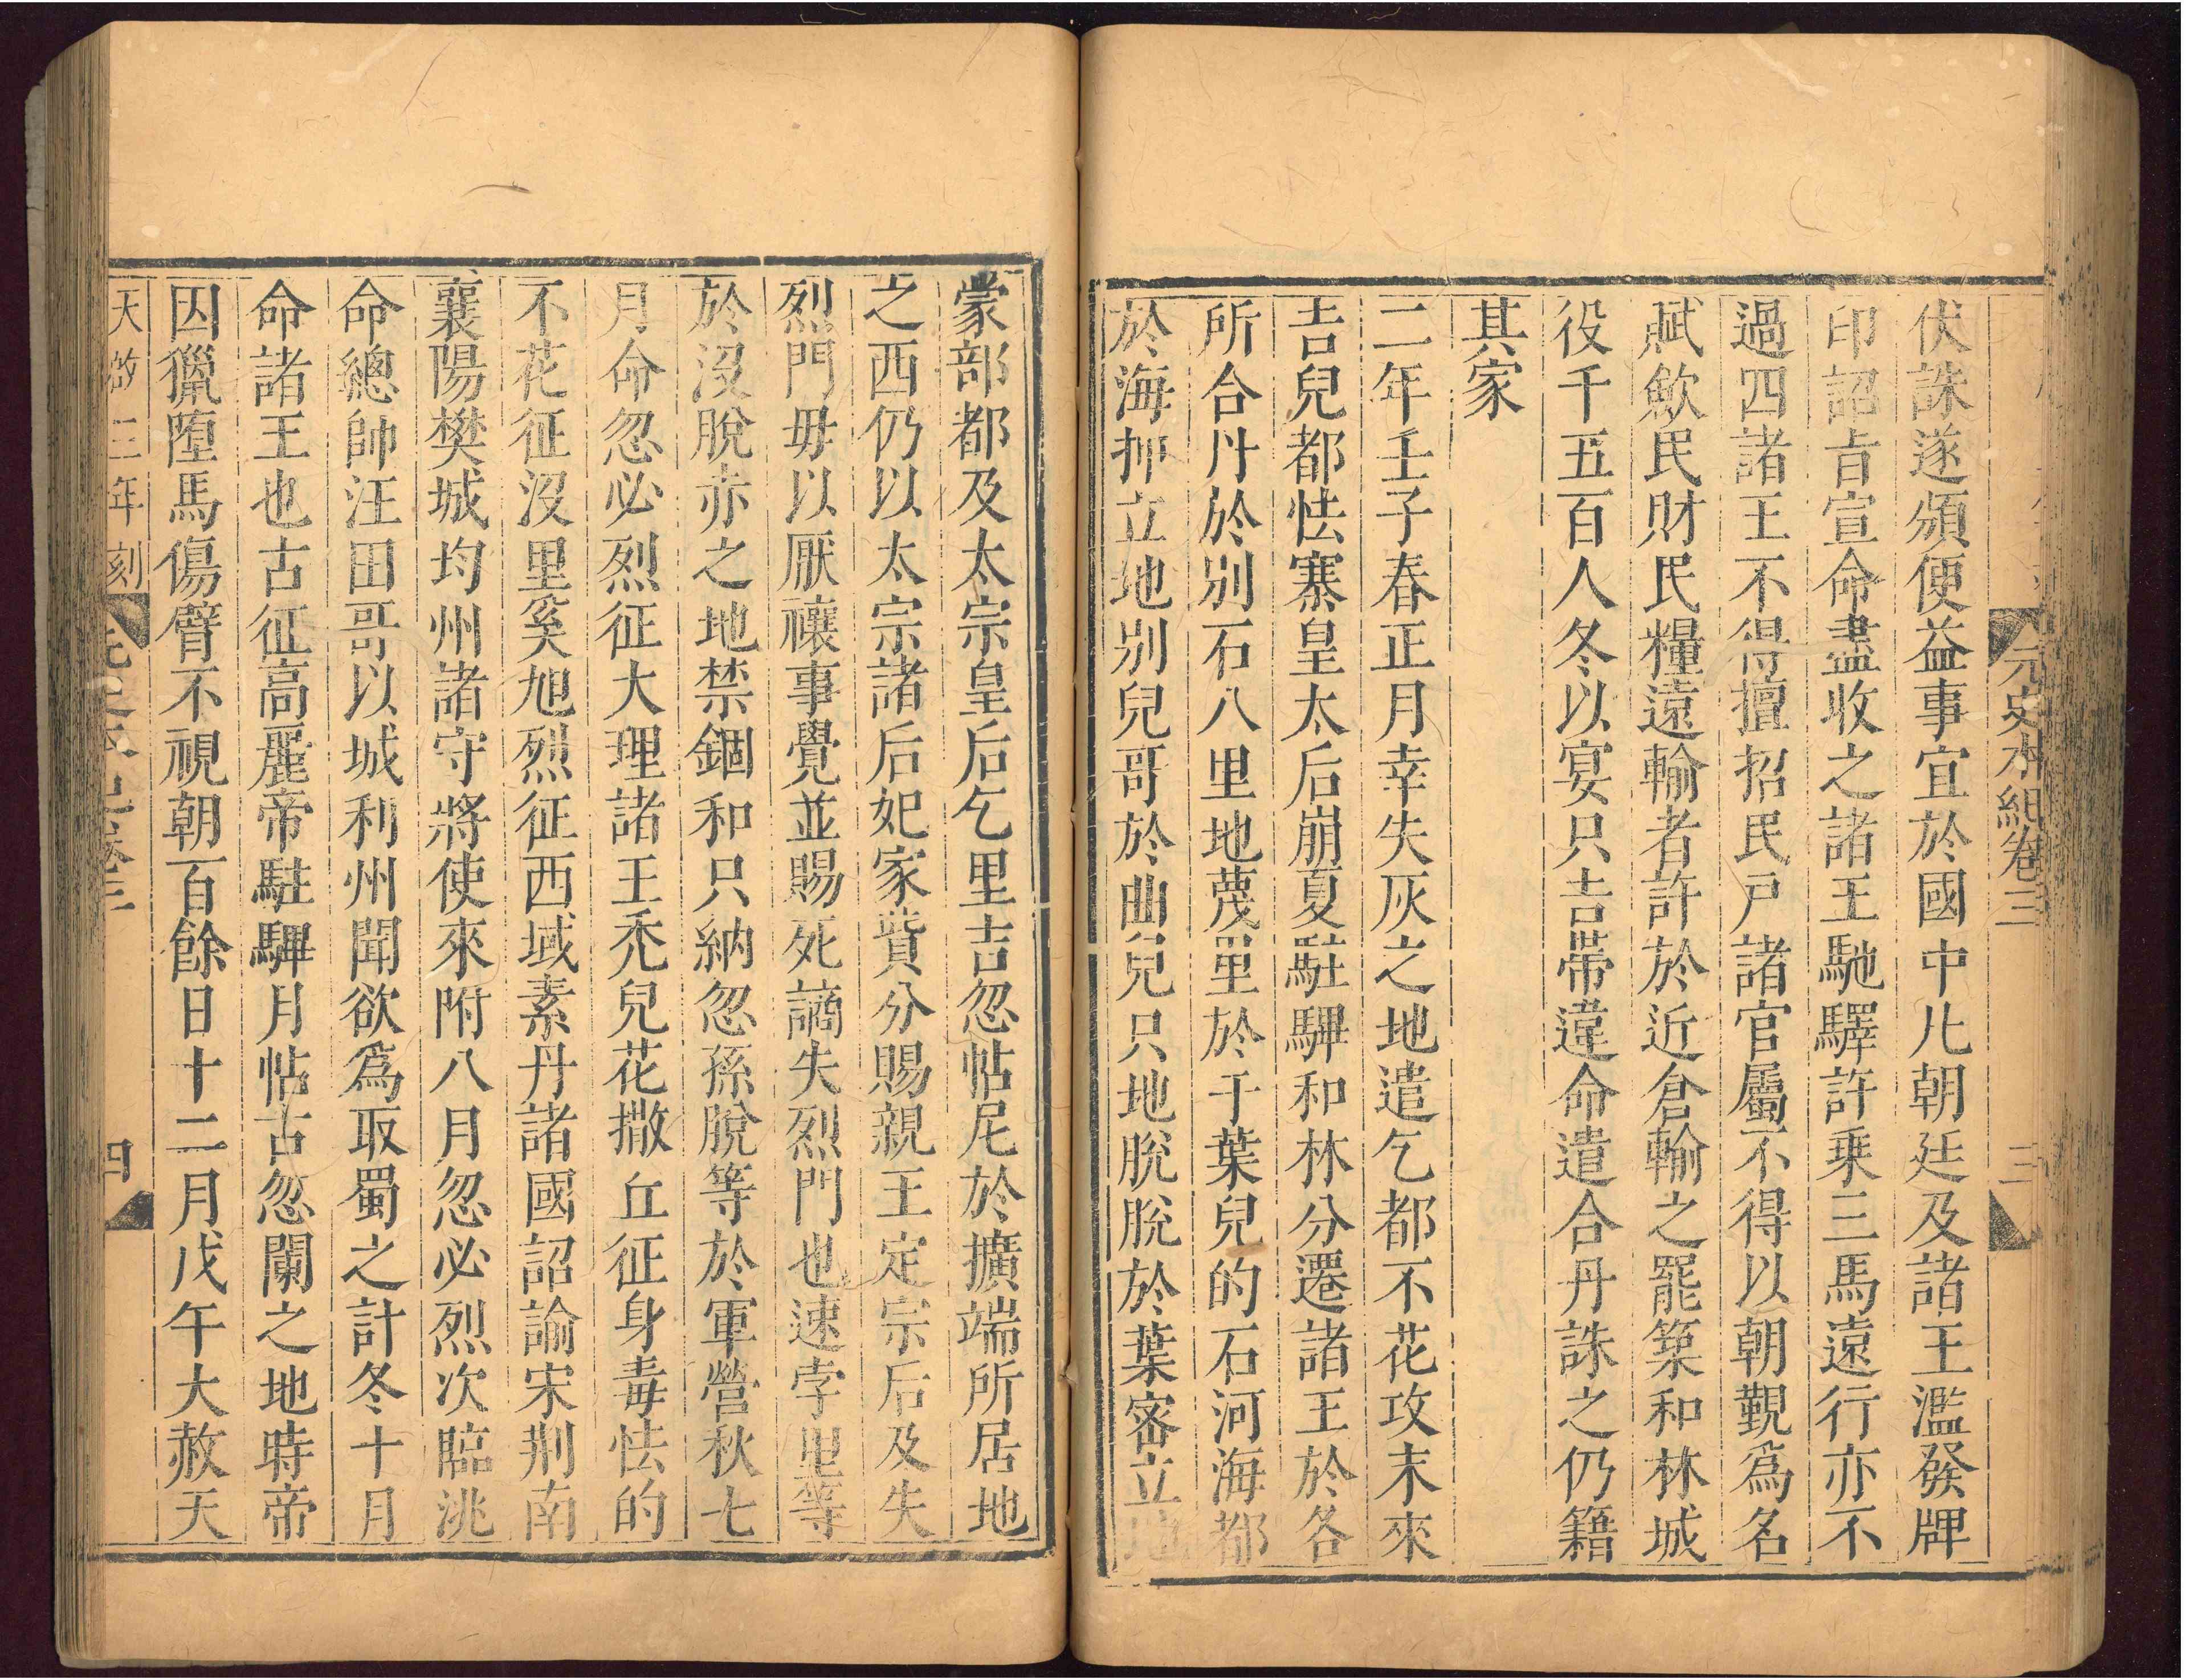 元史本紀卷三
三
伏誅遂頒便益事宜於國中凡朝廷及諸王濫發牌
印詔旨宣命盡收之諸王馳驛許乗三馬遠行亦不
過四諸王不得擅招民戸諸官屬不得以朝覲爲名
賦歛民財民糧遠輸者許於近倉輸之罷築和林城
役千五百人冬以宴只吉帶違命遣合丹誅之仍籍
其家
二年壬子春正月幸失灰之地遣乞都不花攻末來
吉兒都怯寨皇太后崩夏駐驆和林分遷諸王於各
所合丹於别石八里地蔑里於于葉兒的石河海都
於海押立地别兒哥於曲兒只地脫脫於葉密立地
蒙部都及太宗皇后乞里吉忽帖尼於擴端所居地
之西仍以太宗諸后妃家貲分賜親王定宗后及失
烈門毋以厭禳事覺並賜死謫失烈門也速孛里等
於沒脫赤之地禁錮和只納忽孫脫等於軍營秋七
月命忽必烈征大理諸王禿兒花撒丘征身毒怯的
不花征沒里奚旭烈征西域素丹諸國詔諭宋荆南
襄陽樊城均州諸守將使來附八月忽必烈次臨洮
命總帥汪田哥以城利州聞欲爲取蜀之計冬十月
命諸王也古征高麗帝駐驆月帖古忽闌之地時帝
因獵墮馬傷臂不視朝百餘日十二月戊午大赦天
天啟三年刻
元史本紀卷三
四